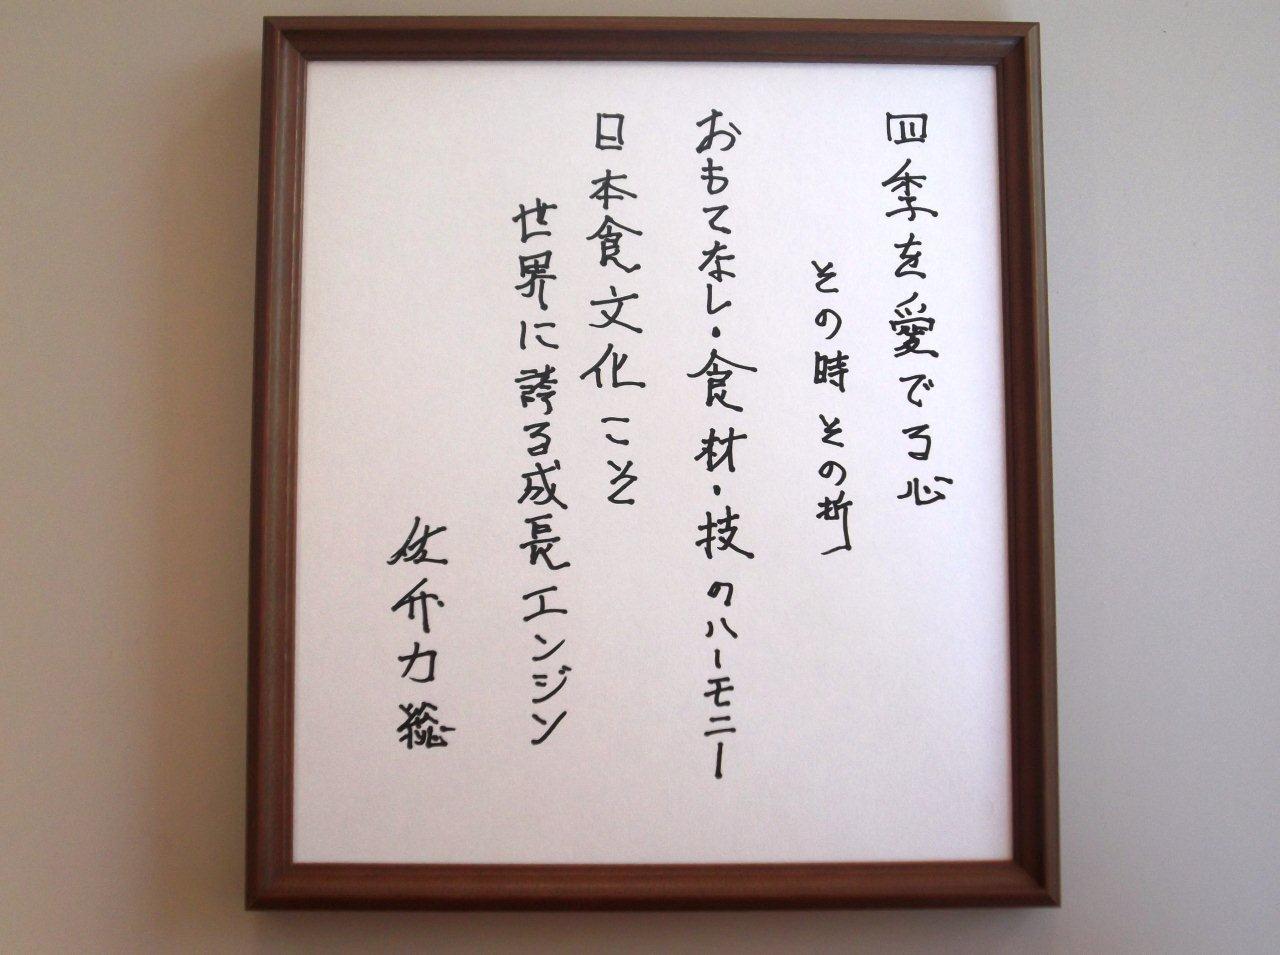 四季を愛でる心
その時その折
おもてなし・食材・技のハーモニー
日本食文化こそ
世界に誇る成長エンジン
佐竹力総